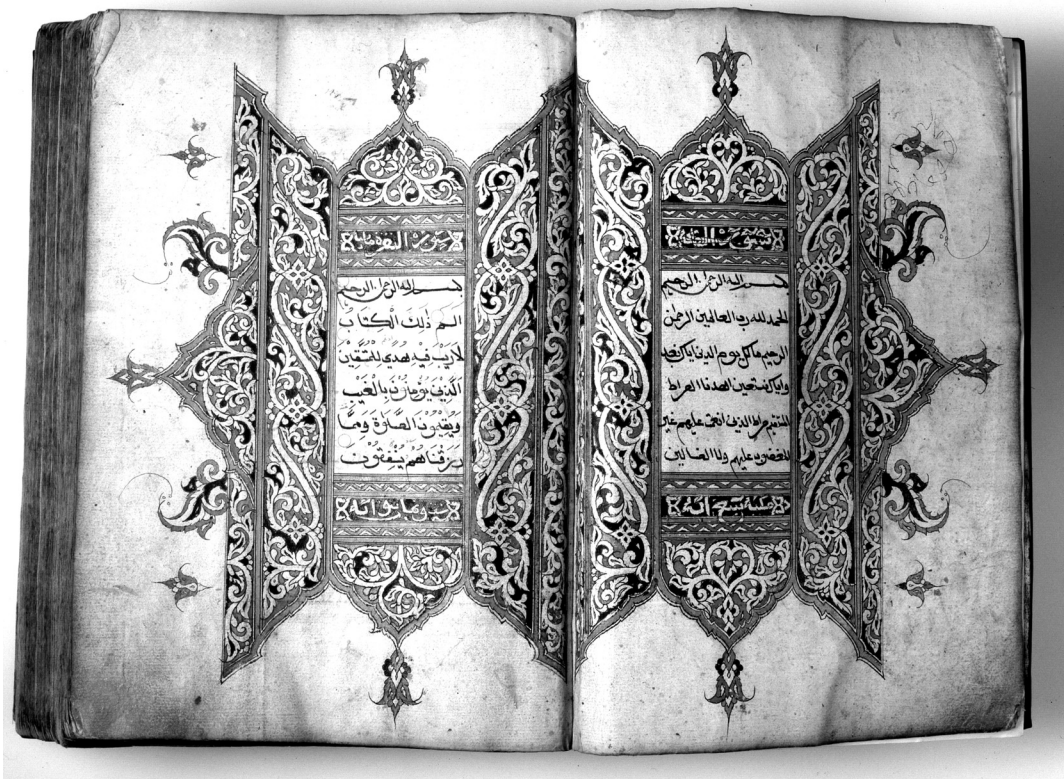 سورة الفاتحة
بسم الله الرحمن الرحيم
الحمد لله رب العالمين الرحمن
الرحيم ملك يوم الدين اياك نعبد
واياك نستعين اهدنا الصراط
المستقيم صراط الذين انعمت عليهم غير
المغضوب عليهم ولا الضالين
مكية سبع اية
سورة البقرة
بسم الله الرحمن الرحيم
الم ذٰلِكَ الْكتَابَ
لاَرَيْبَ فِيهِ هُدًي لِلْمُتَّقِيْنَ
الَّذِيْنَ يُؤْمِنُوْنَ بِالْغَيْبِ
وَيُقِيْمُوْنَ الصَّلوٰةَ وَمِمَّا
رَزَقْنَاهُمْ يُنْفِقُوْنَ